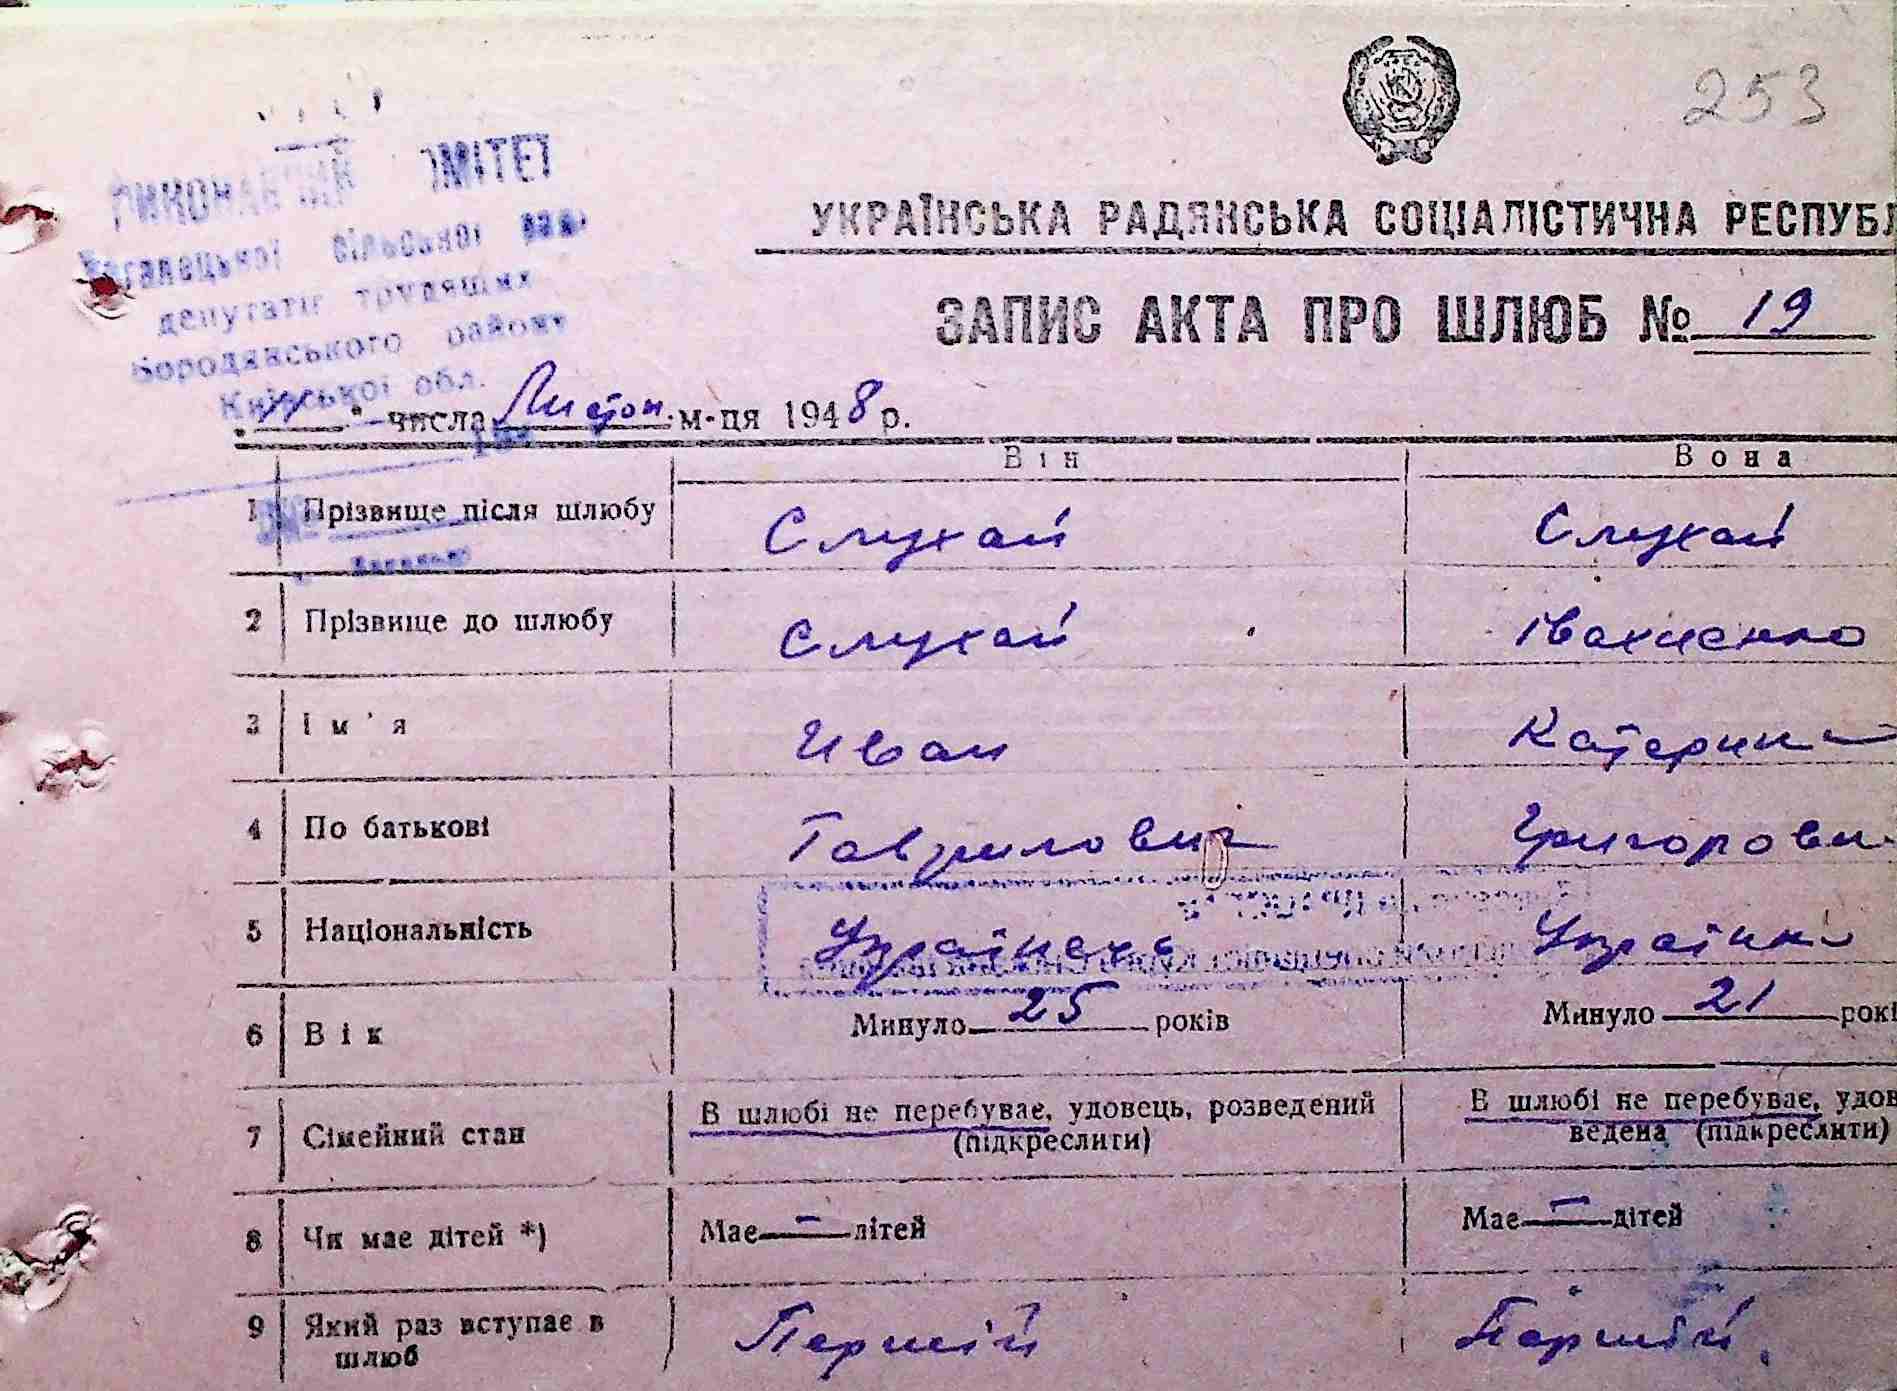 253
ВИКОНАВЧИЙ КОМІТЕТ
сільської ради
депутатів трудящих
Бородянського району
Київської обл.
УКРАЇНСЬКА РАДЯНСЬКА СОЦІАЛІСТИЧНА РЕСПУБЛ
ЗАПИС АКТА ПРО ШЛЮБ № 19
числа Листоп. м-ця 1948 р.
Він Вона
1 Прізвище після шлюбу Слухай Слухай
2 Прізвище до шлюбу Слухай Івахненко
3 Ім'я Иван Катерина
4 По батькові Гаврилович Григорови
5 Національність Українець Українка
6 Вік Минуло 25 років Минуло 21 рокі
7 Сімейний стан В шлюбі не перебуває, удовець, розведений (підкреслити) В шлюбі не перебуває, удов
ведена (підкреслити)
8 Чи має дітей *) Має — дітей Має — дітей
9 Який раз вступає в шлюб Перший Перший